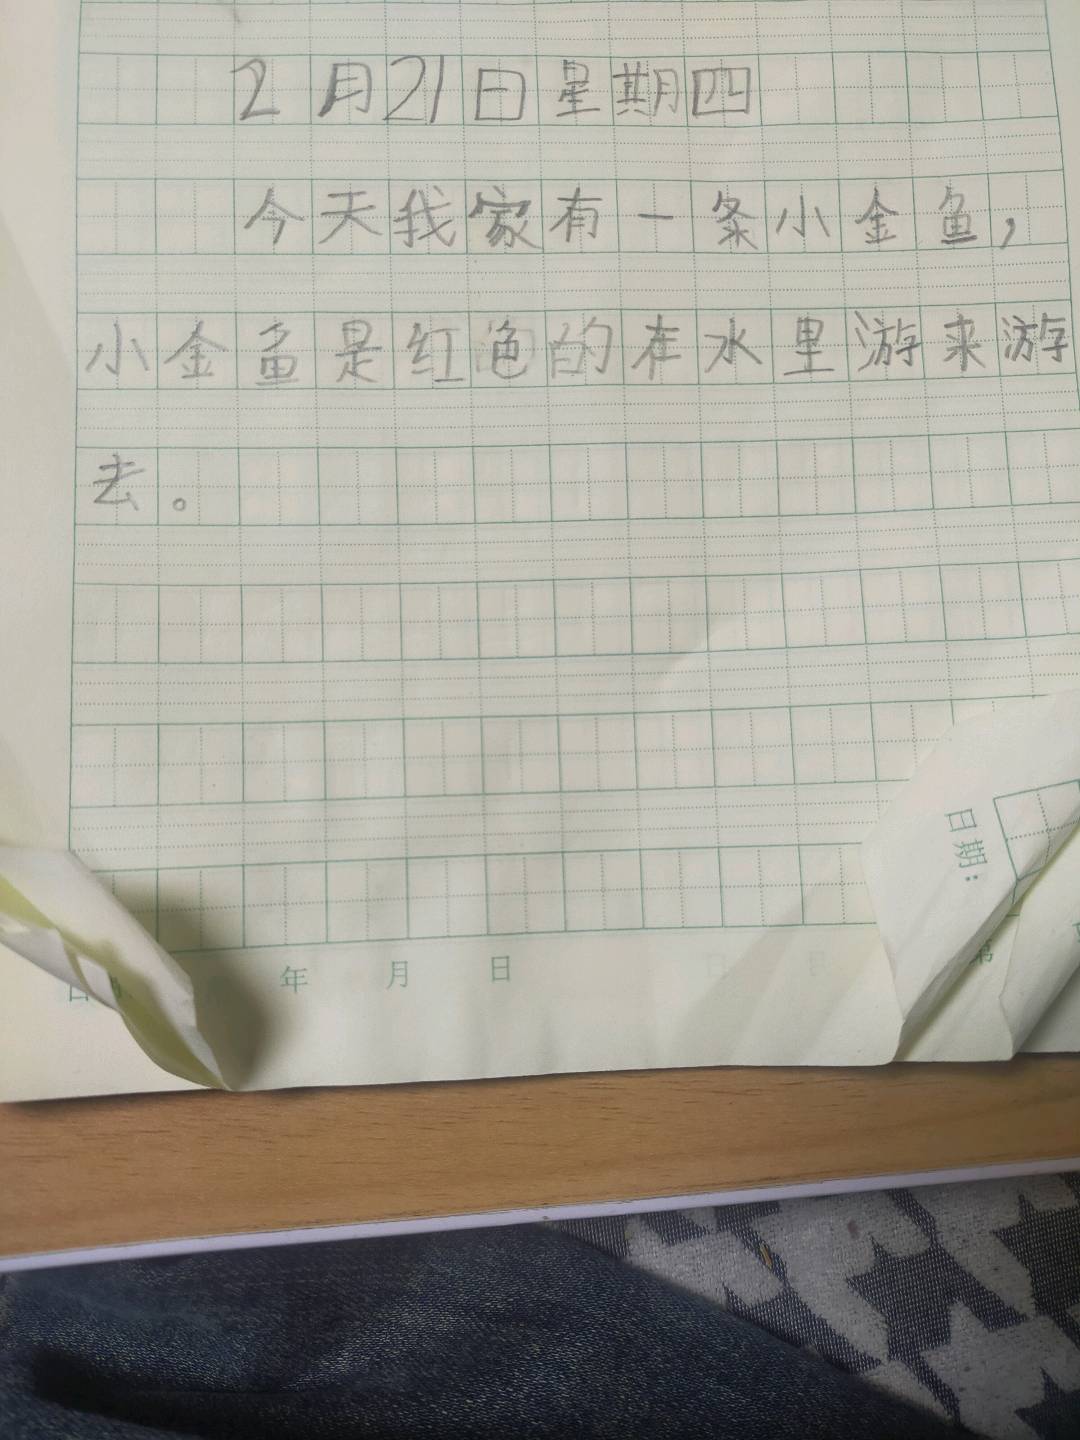 2月21日星期四
今天我家有一条小金鱼，
小金鱼是红色的在水里游来游
去。
日期：
年 月 日
第